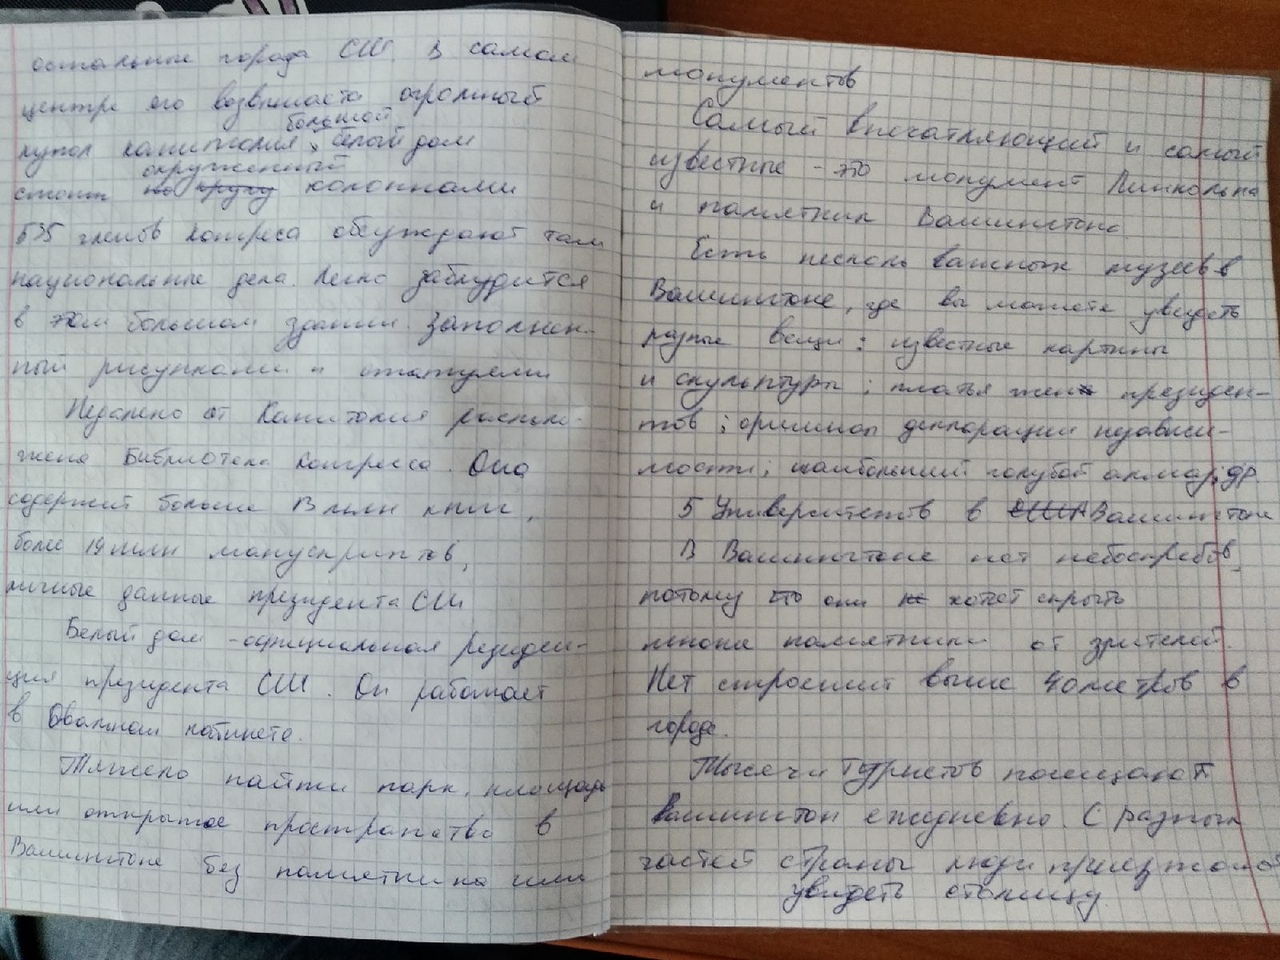 остальные города США. В самом
центре его возвышается огромный
купол капитолия, большой белый дом
стоит окруженный колоннами
535 членов Конгреса обсуждают там
национальные дела. Легко заблудится
в этом большом здании. Заполнен-
ный рисунками и статуями
Недалеко от Капитолия располо-
жена Библиотека Конгресса. Она
содержит больше 13 млн книг,
более 19 млн манускриптов,
личные данные президента США
Белый дом - официальная резиден-
ция президента США. Он работает
в Овальном кабинете.
Тяжело найти парк, площадь
или открытое пространство в
Вашингтоне без памятника или
монументов
Самый впечатляющий и самый
известные - это монумент Линкольна
и памятник Вашингтона
Есть несколь важных музеев в
Вашингтоне, где вы можете увидеть
разные вещи: известные картины
и скульптуры; платья жен президен-
тов; оригинал декларации независи-
мости; наибольший голубой алмаз; др.
5 Университетов в Вашингтоне
В Вашингтоне нет небоскребов,
потому они хотят скрыть
много памятники от зрителей.
Нет строений выше 40 метров в
городе.
Тысячи туристов посещают
Вашингтон ежедневно. С разных
частей страны люди приезжают
увидеть столицу